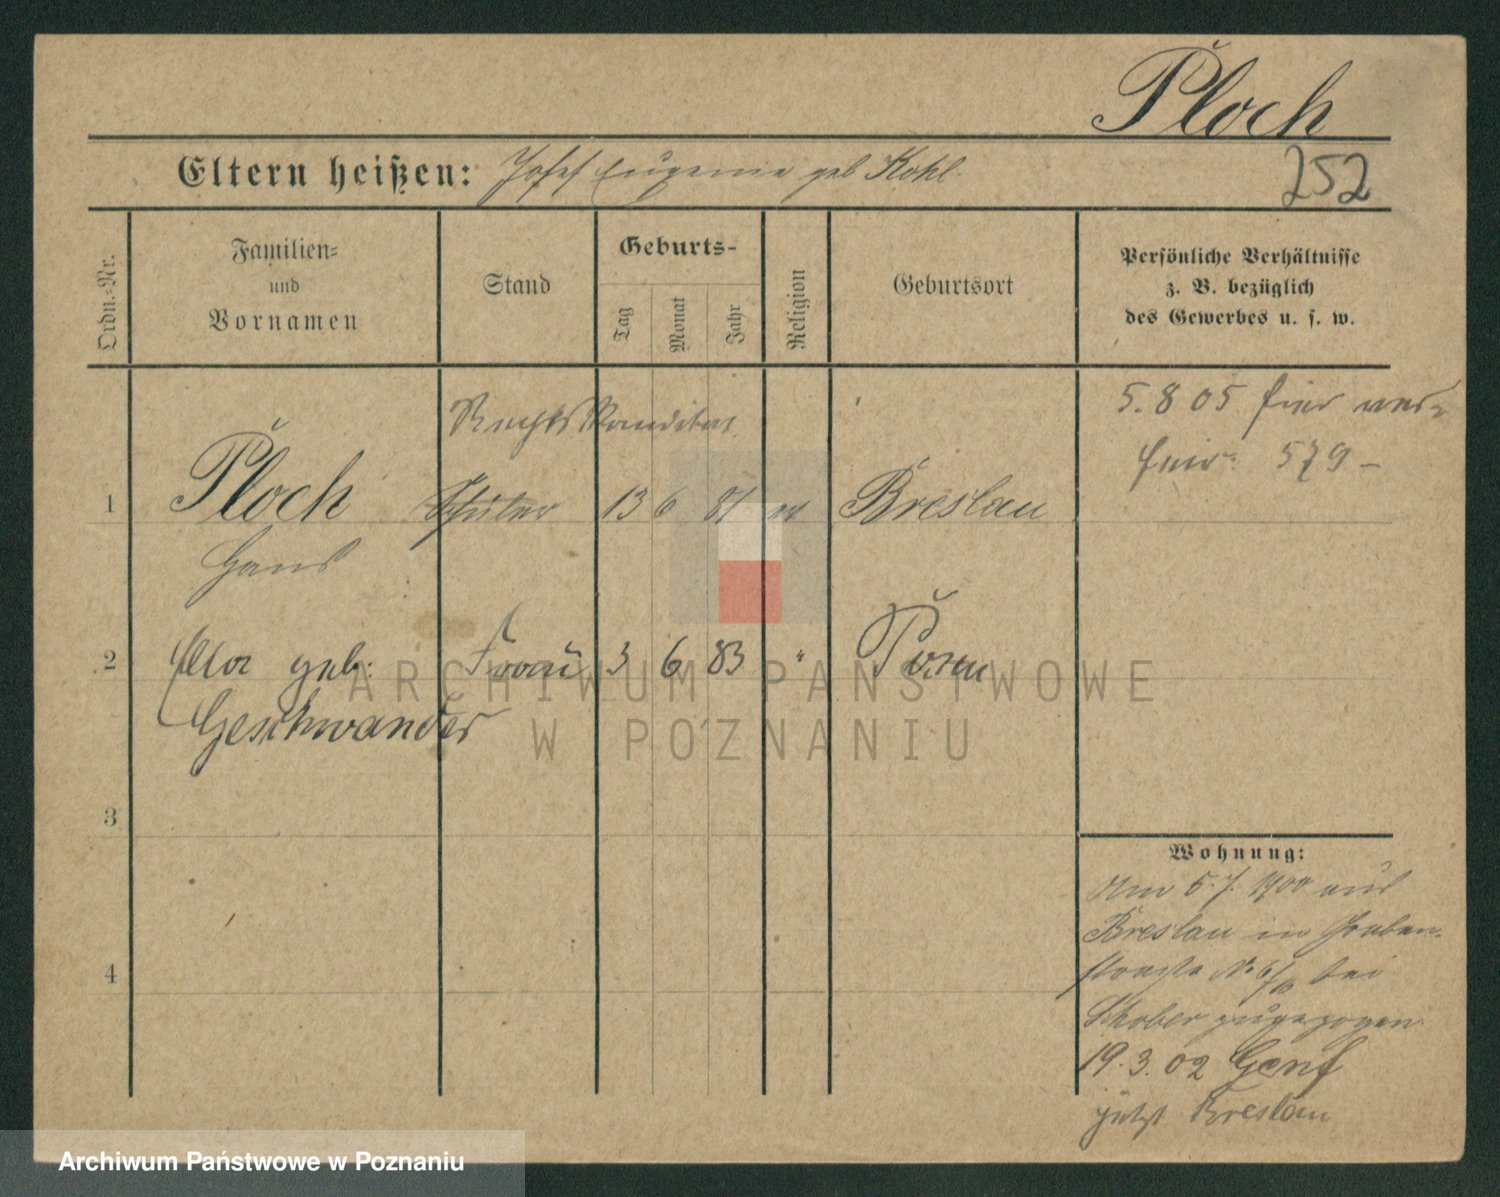 Ploch
Eltern heißen: Josef Eugenie geb Kohl
252
Ordn.-Nr.
Familien-
und
Vornamen
Stand
Geburts-
Tag
Monat
Jahr
Religion
Geburtsort
Persönliche Verhältnisse
z. B. bezüglich
des Gewerbes u. s. w.
5.8 05 hier
579 -
Rechtskandidat
1 Ploch Schüler 13 6 81 Breslau
Hans
2 geb: Frau 3 6 83 " Posen
Geschwander
3
4
Wohnung:
Am 5.7. 1900 aus
Breslau in Graben-
straße No bei
Skober zugezogen
19.3.02 Genf
jetzt Breslau
ARCHIWUM PAŃSTWOWE
W POZNANIU
Archiwum Państwowe w Poznaniu